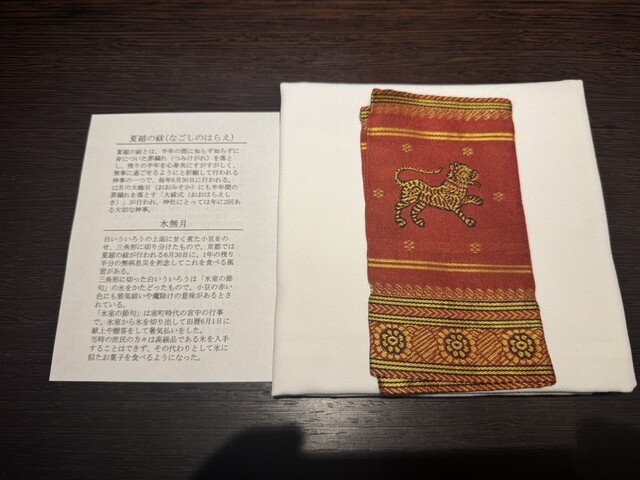 夏越の祓(なごしのはらえ)
夏越の祓とは、半年の間に知らず知らずに
身についた罪穢れ(つみけがれ)を落と
し、残りの半年を心身共にすがすがしく、
無事に過ごせるようにと祈願して行われる
神事の一つで、毎年6月30日に行われる。
12月の大晦日(おおみそか)にも半年間の
罪穢れを落とす「大祓式(おおはらえし
き)」が行われ、神社にとっては年に2回ある
大切な神事。
水無月
白いういろうの上面に甘く煮た小豆をの
せ、三角形に切り分けたもので、京都では
夏越の祓が行われる6月30日に、1年の残り
半分の無病息災を祈念してこれを食べる風
習がある。
三角形に切った白いういろうは「氷室の節
句」の氷をかたどったもので、小豆の赤い
色にも邪気祓いや魔除けの意味があるとさ
れている。
「氷室の節句」は室町時代の宮中の行事
で、氷室から氷を切り出して旧暦6月1日に
献上や贈答をして暑気払いをした。
当時の庶民の方々は高級品である氷を入手
することはできず、その代わりとして氷に
似たお菓子を食べるようになった。